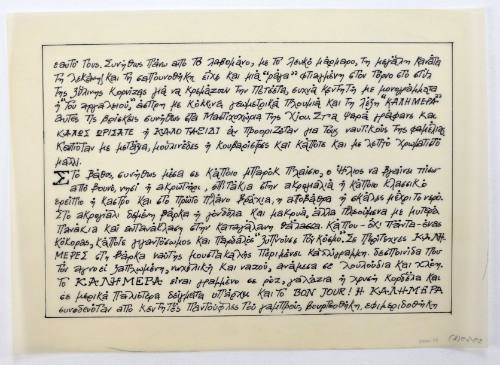 εαυτό τους. Συνήθως πάνω από το λαβομάνο, με το λευκό μάρμαρο, τη μεγάλη κανάτα
τη λεκάνη και τη σαπουνοθήκη είχε και μιά "ράγα" φτιαγμένη στον τόρνο στο στύλ
της ξύλινης κορνίζας γιά να κρεμάζουν την πετσέτα, συχνά κεντητή με μονογράμματα
ή "του αργαλειού", άσπρη με κόκκινα γεωμετρικά πλουμιά και τη λέξη "ΚΑΛΗΜΕΡΑ"
αυτές τις βρίσκεις συνήθως στα Μαστιχοχώρια της Χίου. Στα Ψαρά γράφανε και
ΚΑΛΩΣ ΩΡΙΣΑΤΕ ή ΚΑΛΟ ΤΑΞΙΔΙ άν προορίζόταν για τους ναυτικούς της φαμελιάς
κεντούσαν με μετάξια, μουλινέδες ή κουβαρίστρες και κάποτε και με λεπτό χρωματιστό
μαλλί.
Στο βάθος, συνήθως μέσα σε κάποιο μπαρόκ πλαίσιο, ο ήλιος να βγαίνει πίσω
από βουνό, νησί ή ακρωτήρι, σπιτάκια στην ακρογιαλιά ή κάποιο κλασσικό
ερείπιο ή κάστρο και στο πρώτο πλάνο βράχια, η αποβάθρα ή σκάλες μέχρι το νερό.
Στο ακρογιάλι δεμένη βάρκα ή γόνδολα και μακρυά, άλλα πλεούμενα με μυτερά
πανάκια και αντανάκλαση στην καταγάλανη θάλασσα. Κάπου - όχι πάντα - ένας
κόκορας, κάποτε γιγαντόσωμος και παρδαλός ξυπνούσε τον κόσμο. Σε περίπτυχες ΚΑΛΗ
ΜΕΡΕΣ στη βάρκα ναύτης μουστακαλής περιμένει καλλίγραμμη δεσποινίδα που
τον αγνοεί ξαπλωμένη, νωχελική και ναζού, ανάμεσα σε λουλούδια και χλόη.
Το ΚΑΛΗΜΕΡΑ είναι γραμμένο σε ρόζ, γαλάζια ή χρυσή κορδέλα και
σε μερικά παλιότερα δείγματα υπάρχει και το BON JOUR! Η ΚΑΛΗΜΕΡΑ
συνοδευόταν από κεντητές παντούφλες του γαμπρού, βουρτσοθήκη, εφημεριδοθήκη